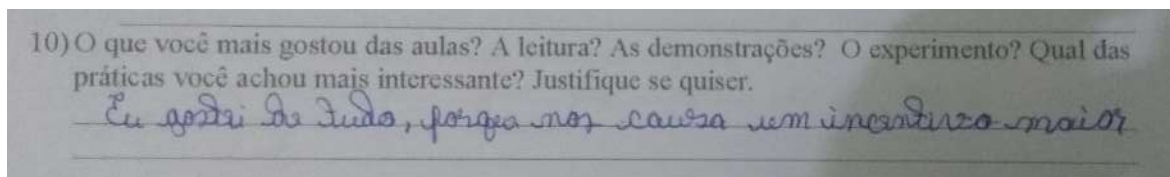 10) O que você mais gostou das aulas? A leitura? As demonstrações? O experimento? Qual das
práticas você achou mais interessante? Justifique se quiser.
Eu gostei de tudo, porque nos causa um incentivo maior